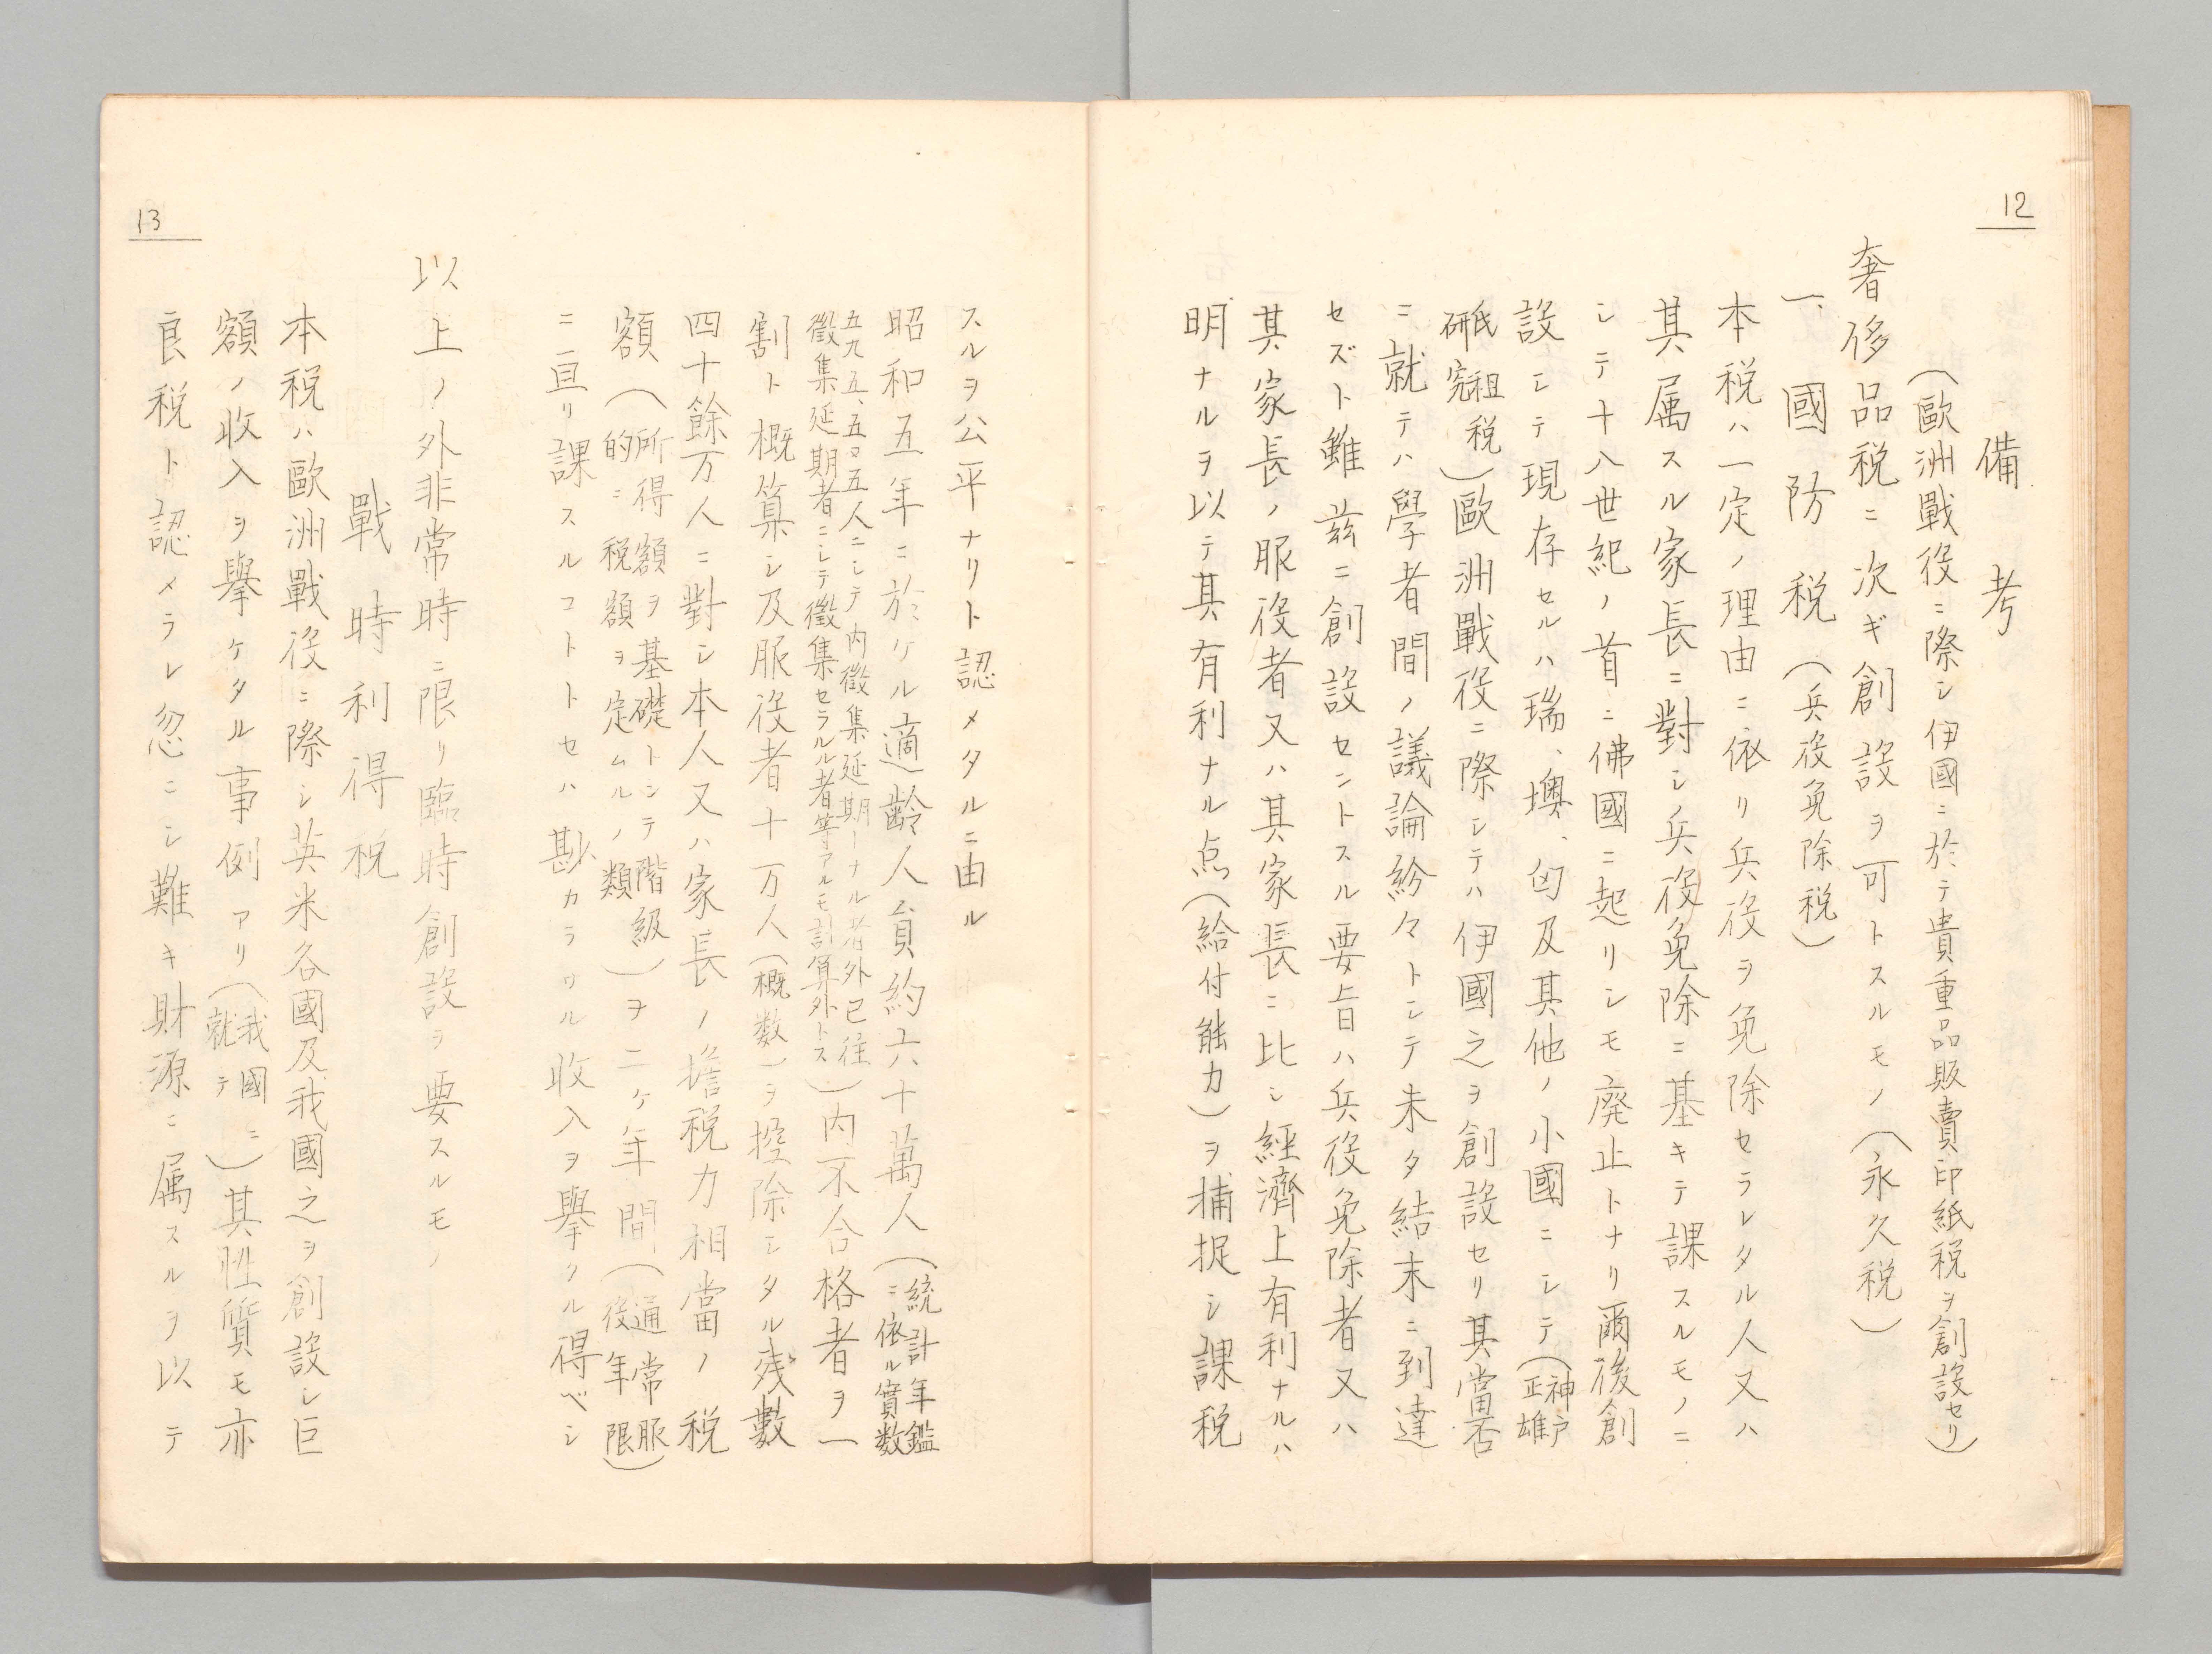 12
備考
（歐洲戰役ニ際シ伊國ニ於テ貴重品販賣印紙税ヲ創設セリ）
奢侈品税ニ次ギ創設ヲ可トスルモノ（永久税）
一、國防税（兵役免除税）
本税ハ一定ノ理由ニ依リ兵役ヲ免除セラレタル人又ハ
其属スル家長ニ對シ兵役免除ニ基キテ課スルモノニ
シテ十八世紀ノ首ニ佛國ニ起リシモ廃止トナリ爾後創
設シテ現存セルハ瑞、墺、匈及其他ノ小國ニシテ（神戸正雄
氏租税研究）歐洲戰役ニ際シテハ伊國之ヲ創設セリ其當否
ニ就テハ學者間ノ議論紛々トシテ未タ結末ニ到達
セズト雖茲ニ創設セントスル要旨ハ兵役免除者又ハ
其家長ノ服役者又ハ其家長ニ比シ經濟上有利ナルハ
明ナルヲ以テ其有利ナル点（給付能力）ヲ捕捉シ課税
13
スルヲ公平ナリト認メタルニ由ル
昭和五年ニ於ケル適齢人員約六十萬人（統計年鑑ニ依ル實数
五九五、五〇五人ニシテ内徴集延期ーナル者外已往
徴集延期者ニシテ徴集セラルル者等アルモ計算外トス）内不合格者ヲ一
割ト概算シ及服役者十万人（概数）ヲ控除シタル残數
四十餘万人ニ對シ本人又ハ家長ノ擔税力相當ノ税
額（所得額ヲ基礎トシテ階級的ニ税額ヲ定ムルノ類）ヲ二ケ年間（通常服役年限）
ニ亘リ課スルコトトセハ尠カラサル収入ヲ擧クル得ベシ
以上ノ外非常時ニ限リ臨時創設ヲ要スルモノ
戰時利得税
本税ハ歐洲戰役ニ際シ英米各國及我國之ヲ創設シ巨
額ノ收入ヲ擧ケタル事例アリ（我國ニ就テ）其性質モ亦
良税ト認メラレ忽ニシ難キ財源ニ属スルヲ以テ